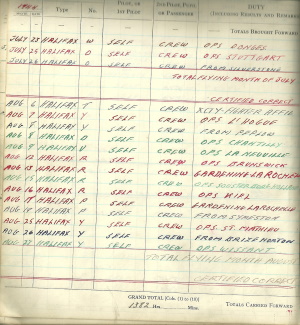 1944
Type
No.
PILOT, OR 1ST PILOT
2ND PILOT, PUPIL OR PASSENGER
DUTY
(INCLUDING RESULTS AND REMARKS)
TOTALS BROUGHT FORWARD
JULY 25 HALIFAX W SELF CREW OPS DONGES
JULY 25 HALIFAX O SELF CREW OPS STUTTGART
JULY 26 HALIFAX O SELF CREW FROM SILVERSTONE
TOTAL FLYING MONTH OF JULY
CERTIFIED CORRECT
AUG 6 HALIFAX T SELF CREW
AUG 7 HALIFAX Y SELF CREW OPS
AUG 8 HALIFAX Y SELF CREW FROM PEPLOW
AUG HALIFAX O SELF CREW OPS CHANTILLY
AUG 9 HALIFAX U SELF CREW OPS LA NEUVILLE
AUG 12 HALIFAX R SELF CREW OPS BRUNSWICK
AUG HALIFAX R SELF CREW GARDENING LA ROCHELLE
AUG HALIFAX R SELF CREW OPS
AUG 16 HALIFAX R SELF CREW OPS KIEL
AUG HALIFAX P SELF CREW GARDENING
AUG HALIFAX P SELF CREW FROM SYERSTON
AUG 25 HALIFAX Y SELF CREW OPS ST. MATHIEU
AUG 26 HALIFAX Y SELF CREW FROM BRIZE NORTON
AUG 27 HALIFAX Y SELF CREW OPS
TOTAL FLYING MONTH AUGUST
CERTIFIED CORRECT
GRAND TOTAL [Cols. (1) to (10)]
1382 Hrs. Mins.
TOTALS CARRIED FORWARD